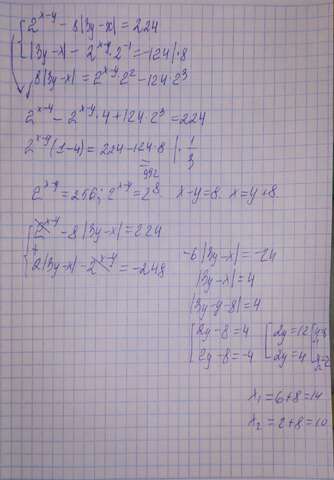 2^{x-y} - 8|3y-x| = 224
|3y-x| - 2^{x-y}·2^{-1} = -124 |·8
8|3y-x| = 2^{x-y}·2^2 - 124·2^3
2^{x-y} - 2^{x-y}·4 + 124·2^3 = 224
2^{x-y}(1-4) = 224 - 124·8 |·1/3
992
2^{x-y} = 256; 2^{x-y} = 2^8. x-y=8. x=y+8.
2^{x-y} - 8|3y-x| = 224
2|3y-x| - 2^{x-y} = -248
-6|3y-x| = -24
|3y-x| = 4
|3y-y-8| = 4
2y-8=4
2y-8=-4
2y=12
2y=4
x₁=6+8=14
x₂=2+8=10